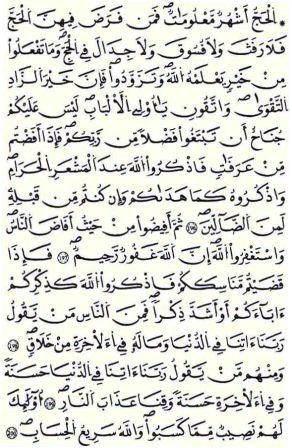 ۞ اَلْحَجُّ أَشْهُرٌ مَّعْلُومَٰتٌ فَمَن فَرَضَ فِيهِنَّ اَلْحَجَّ
فَلَا رَفَثَ وَلَا فُسُوقَ وَلَا جِدَالَ فِي اِلْحَجِّ وَمَا تَفْعَلُواْ
مِنْ خَيْرٍ يَعْلَمْهُ اُللَّهُ وَتَزَوَّدُواْ فَإِنَّ خَيْرَ اَلزَّادِ
اِلتَّقْوَىٰ وَاتَّقُونِ يَٰأُوْلِي اِلَالْبَٰبِ لَيْسَ عَلَيْكُمْ
جُنَاحٌ أَن تَبْتَغُواْ فَضْلًا مِّن رَّبِّكُمْ فَإِذَا أَفَضْتُم
مِّنْ عَرَفَٰتٍ فَاذْكُرُواْ اُللَّهَ عِندَ اَلْمَشْعَرِ اِلْحَرَامِ
وَاذْكُرُوهُ كَمَا هَدَىٰكُمْ وَإِن كُنتُم مِّن قَبْلِهِ
لَمِنَ اَلضَّآلِّينَ ثُمَّ أَفِيضُواْ مِنْ حَيْثُ أَفَاضَ اَلنَّاسُ
وَاسْتَغْفِرُواْ اُللَّهَ إِنَّ اَللَّهَ غَفُورٌ رَّحِيمٌ فَإِذَا
قَضَيْتُم مَّنَٰسِكَكُمْ فَاذْكُرُواْ اُللَّهَ كَذِكْرِكُمُ
ءَابَآءَكُمُ أَوْ أَشَدَّ ذِكْرًا فَمِنَ اَلنَّاسِ مَن يَقُولُ
رَبَّنَا ءَاتِنَا فِي اِلدُّنْيَا وَمَا لَهُ فِي اِلَاخِرَةِ مِنْ خَلَٰقٍ
وَمِنْهُم مَّن يَقُولُ رَبَّنَا ءَاتِنَا فِي اِلدُّنْيَا حَسَنَةً
وَفِي اِلَاخِرَةِ حَسَنَةً وَقِنَا عَذَابَ اَلنَّارِ أُوْلَٰئِكَ
لَهُمْ نَصِيبٌ مِّمَّا كَسَبُواْ وَاللَّهُ سَرِيعُ اُلْحِسَابِ